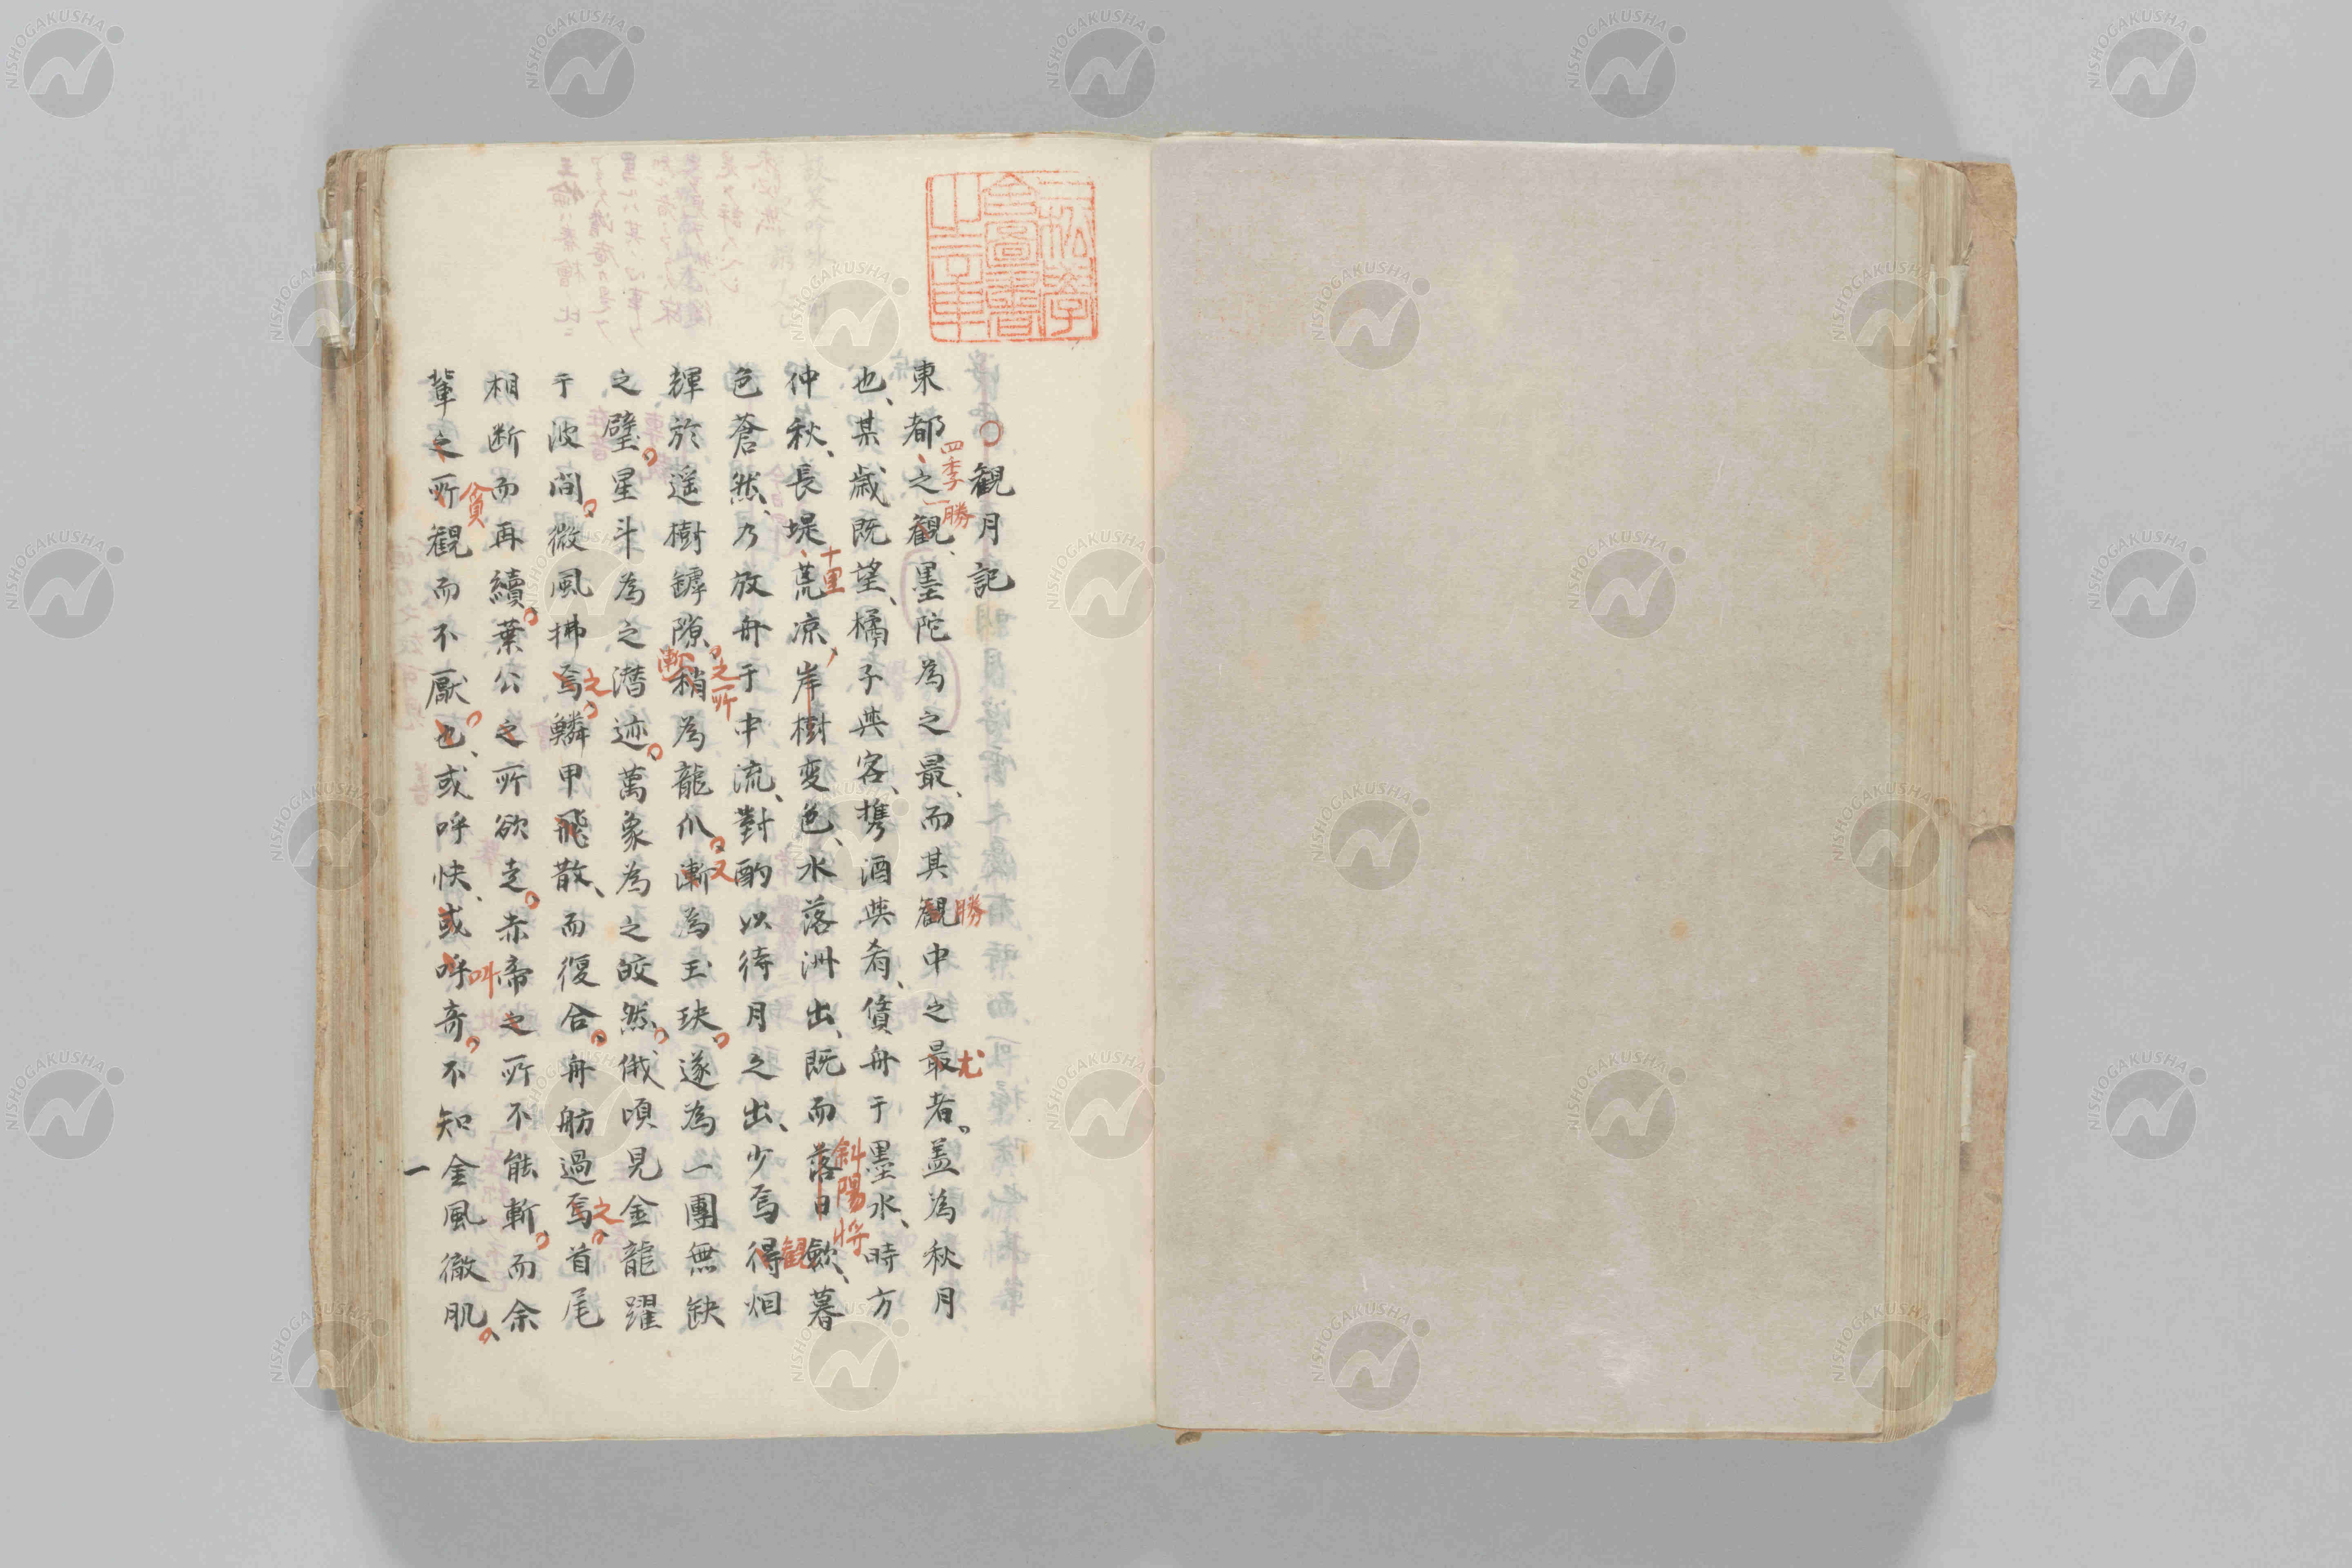 觀月記
東都之觀、墨陀為之最、而其觀中之最者。蓋為秋月
四季
勝
勝
尤
也、某歲既望、橘子與客、携酒與肴、賃舟于墨水、時方
仲秋、長堤荒凉、岸樹変色、水落洲出、既而落日歛、暮
十里
斜陽將
色蒼然、乃放舟于中流、對酌以待月之出、少焉得烟
觀
輝於遥樹罅隙。稍為龍爪。漸為玉玦。遂為一團無缺
之所
漸
又
之璧。星斗為之潛迹。萬象為之皎然。俄頃見金龍躍
于波間。微風拂焉鱗甲飛散、而復合。舟舫過焉首尾
之
之
相断而再續。葉公之所欲走。赤帝之所不能斬。而余
輩之所觀而不厭也、或呼快、或呼奇。不知金風徹肌。
貪
叫
一
NISHOGAKUSHA